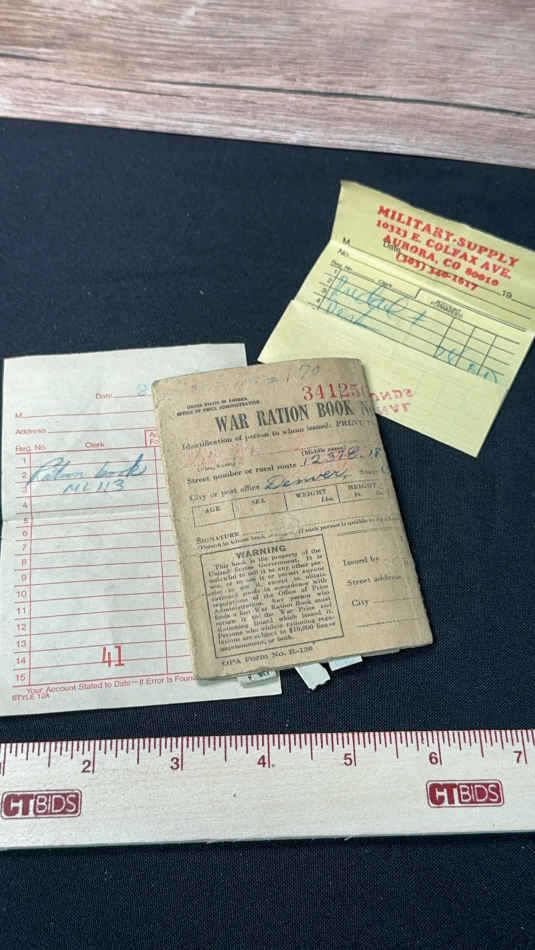 MILITARY-SUPPLY
10323 E. COLFAX AVE.
AURORA, CO 80010
(303) 340-1817
M
Date
No.
Reg. No.
Clerk
19
1
2
3
4
Date
M
Address
Reg. No.
Clerk
1
2
3
4
5
6
7
8
9
10
11
12
13
14
15
Ration book
ML113
41
Your Account Stated to Date—If Error Is Foun
STYLE 12A
UNITED STATES OF AMERICA
OFFICE OF PRICE ADMINISTRATION
34125
WAR RATION BOOK N
Identification of person to whom issued: PRINT
(Middle name)
Street number or rural route
City or post office Denver, State
AGE
SEX
WEIGHT
Lbs.
HEIGHT
Ft. In.
SIGNATURE
(Person to whom book is issued. If such person is unable to sign
WARNING
This book is the property of the
United States Government. It is
unlawful to sell it to any other per-
son or to use it or permit anyone
else to use it, except to obtain
rationed goods in accordance with
regulations of the Office of Price
Administration. Any person who
finds a lost War Ration Book must
return it to the War Price and
Rationing Board which issued it.
Persons who violate rationing regu-
lations are subject to $10,000 fine or
imprisonment, or both.
Issued by
Street address
City
OPA Form No. R-130
2
3
4
5
6
7
CTBIDS
CTBIDS